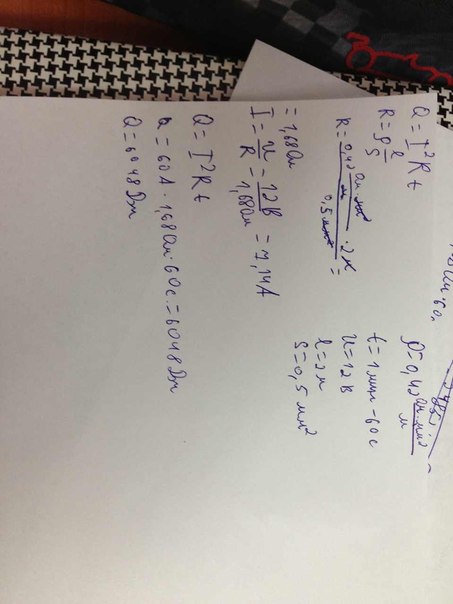 Q = I²Rt
R = ρ l/S
R = 0,42 Ом·мм²/м · 2м / 0,5 мм² =
= 1,68 Ом
I = U/R = 12В/1,68Ом = 7,14А
Q = I²Rt
Q = 60А · 1,68Ом · 60с. = 6048 Дж
Q = 6048 Дж
ρ = 0,42 Ом·мм²/м
t = 1 мин - 60с
U = 12В
l = 2м
S = 0,5 мм²